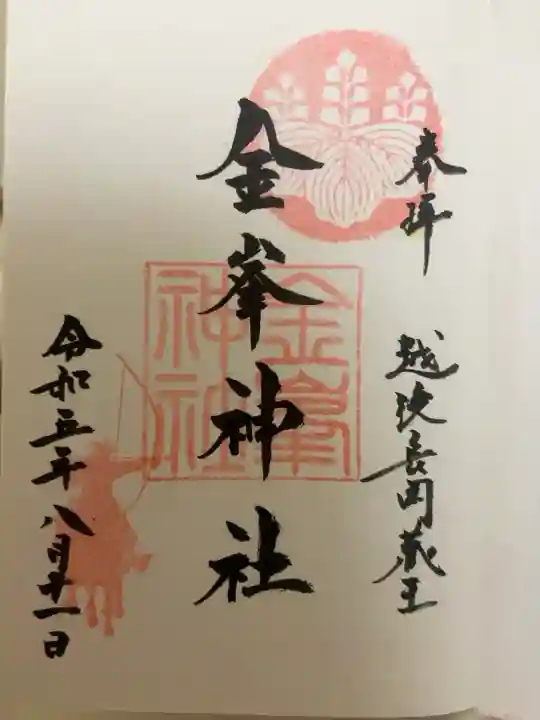 奉拝
越後長岡蔵王
金峯神社
金峯神社
令和五年八月十一日